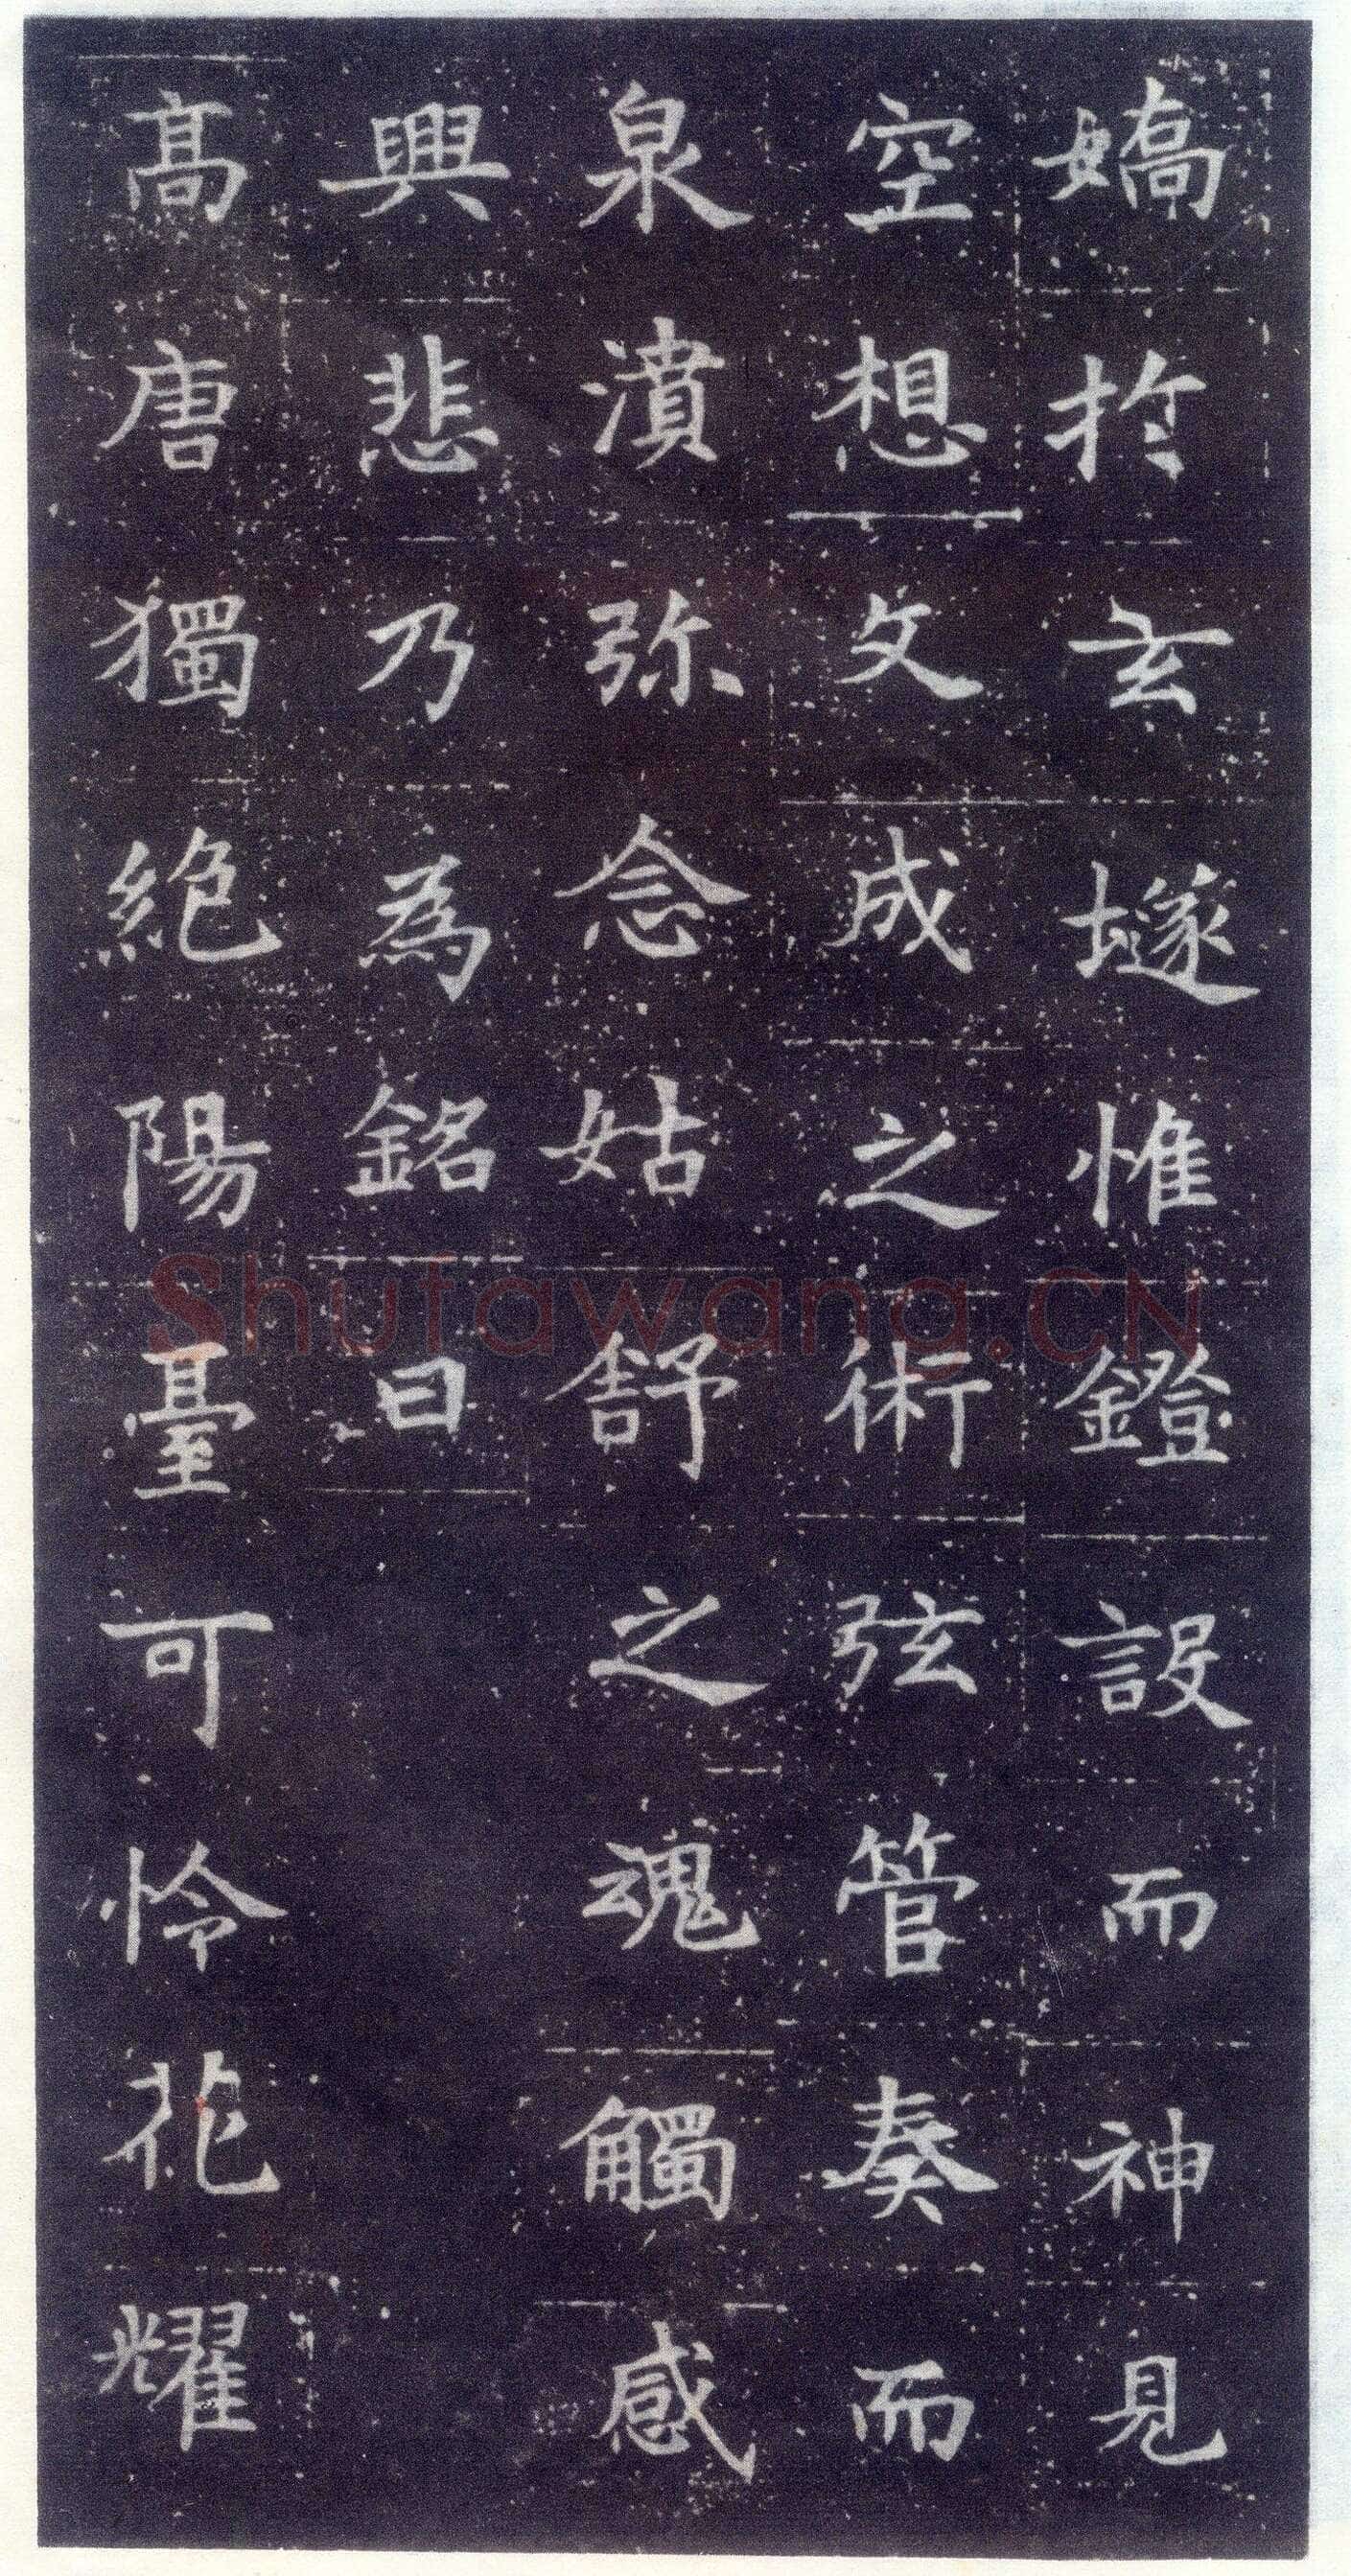 嬌於玄墜惟鐙設而神見
空想文成之術弦管奏而
泉濆弥念姑舒之魂觸感
興悲乃為銘曰
高唐獨絶陽臺可怜花耀
Shufawang.CN